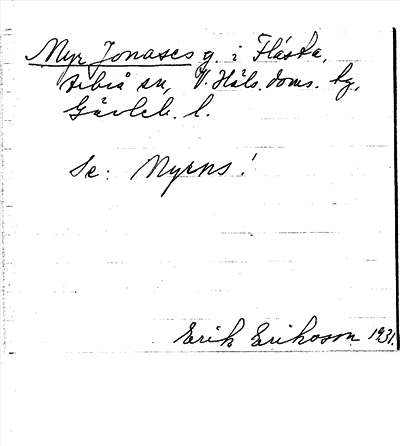 Myr Jonases g. i Flästa,
Arbrå sn, V. Häls. doms. tg,
Gävleb. l.
Se: Myrns!
Erik Eriksson 1931.